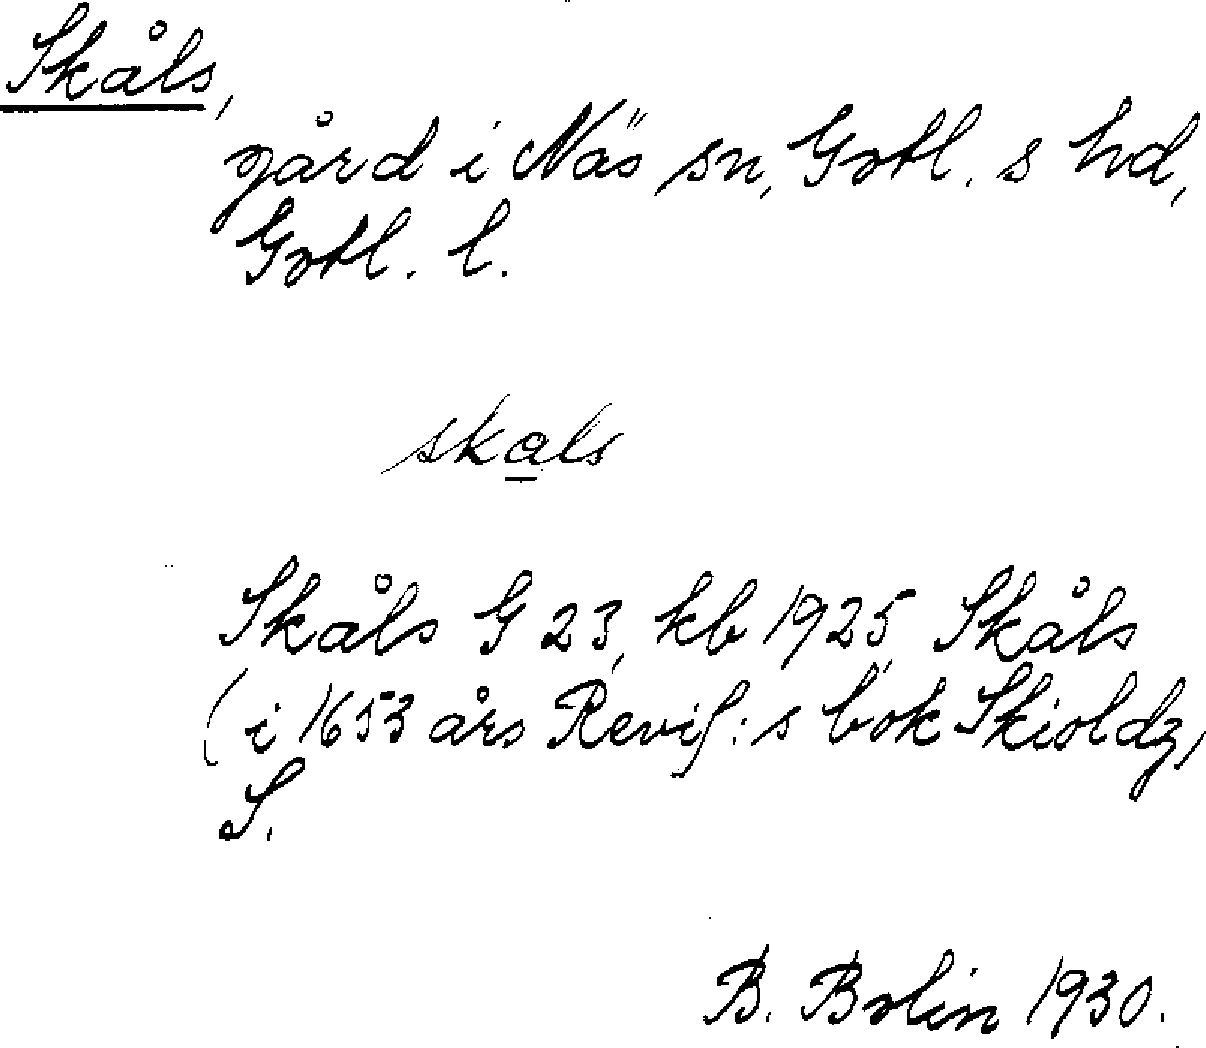 Skåls,
gård i Näs sn, Gotl. s hd,
Gotl. l.
skals
Skåls G 23, kb 1925 Skåls
(i 1653 års Revis:s bok Skioldz,
S.
B. Bolin 1930.